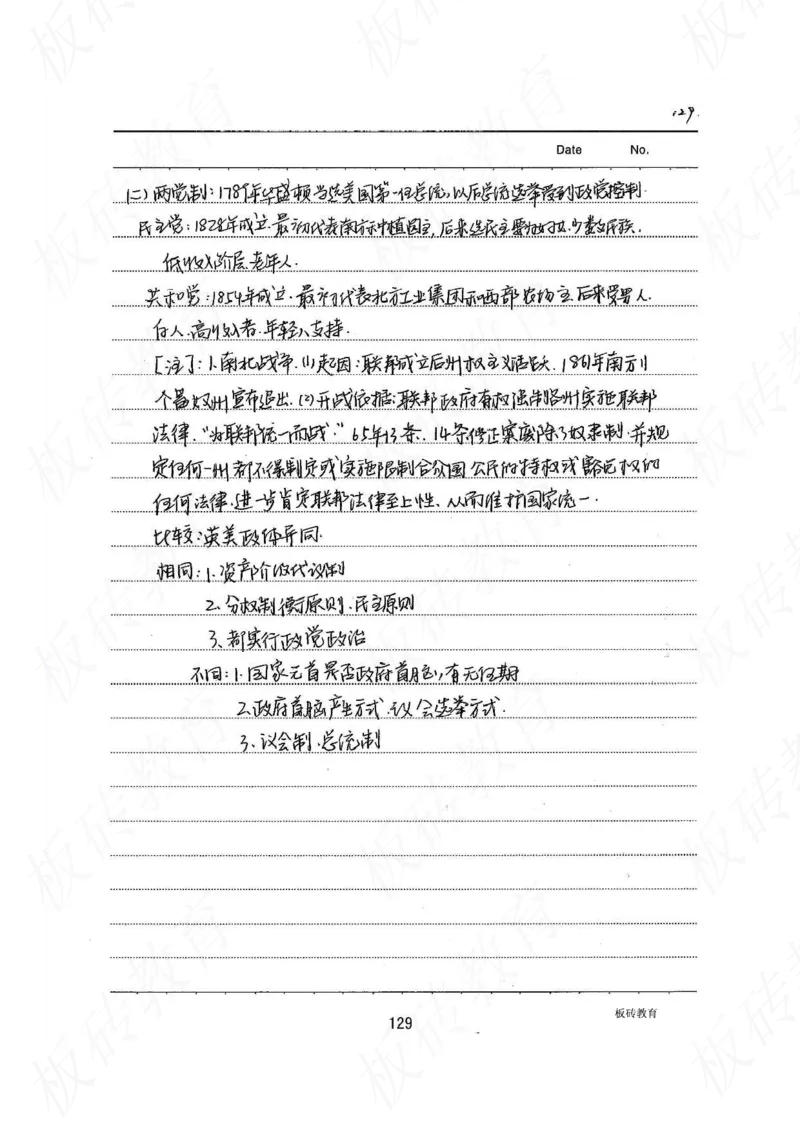 129.
Date No.
(二)两党制:1789年华盛顿当选美国第一任总统,以后总统选举受到政党控制.
民主党:1828年成立.最初代表南方种植园主,后来选民主要为妇女.少数民族.
低收入阶层.老年人.
共和党:1854年成立.最初代表北方工业集团和西部农场主.后来受男人.
白人.高收入者.年轻人支持.
[注]:1.南北战争.(1)起因:联邦成立后州权主义活跃.1861年南方11
个蓄奴州宣布退出.(2)开战依据:联邦政府有权强制各州实施联邦
法律."为联邦统一而战."65年13条.14条修正案废除了奴隶制.并规
定任何一州都不得制定或实施限制合众国公民的特权或豁免权的
任何法律.进一步肯定联邦法律至上性、从而维护国家统一.
比较:英美政体异同.
相同:1.资产阶级代议制
2.分权制衡原则.民主原则
3、都实行政党政治
不同:1.国家元首是否政府首脑,有无任期
2.政府首脑产生方式.议会选举方式.
3、议会制.总统制
板砖教育
129